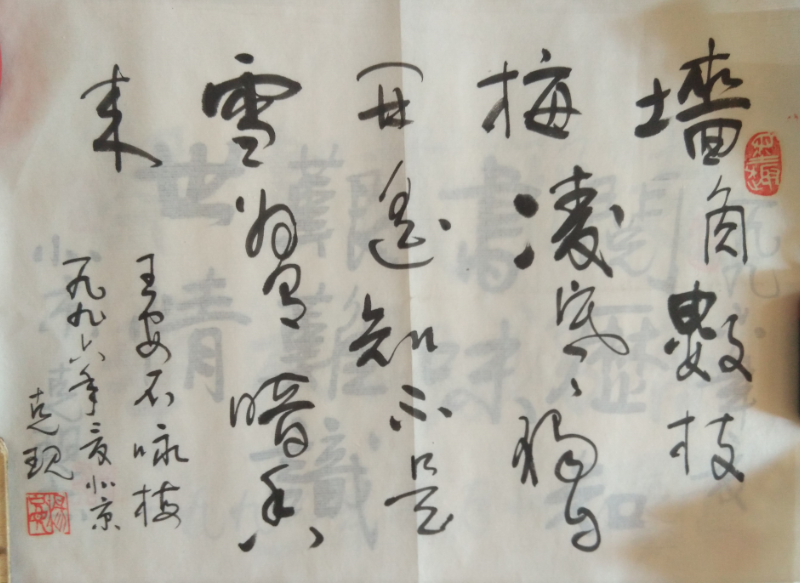 墻角數枝
梅凌寒独自
开遥知不是
雪为有暗香
来
王安石咏梅
一九九六年夏北京